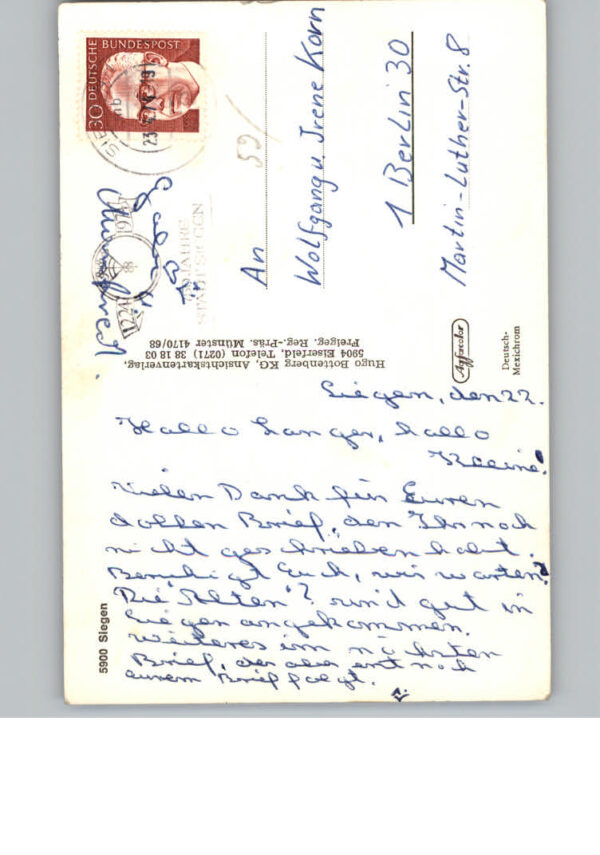 Siegen, den 22.
Hallo Langer, hallo
Kleine!
Vielen Dank für Euren
dollen Brief, den Ihr noch
nicht geschrieben habt.
Beruhigt Euch, wir warten.
Die "Alten"? sind gut in
Siegen angekommen.
Weiteres im nächsten
Brief, der aber erst nach
eurem Brief folgt.
Manfred
5900 Siegen
Hugo Bottenberg KG, Ansichtskartenverlag,
5904 Eiserfeld, Telefon (0271) 38 18 03
Freigeg. Reg.-Präs. Münster 4170/68
Agfacolor
Deutsch-
Mexichrom
DEUTSCHE BUNDESPOST
30
SIEGEN
1224 1974
JAHRE
STADT SIEGEN
59/
An
Wolfgang u. Irene Korn
1 Berlin 30
Martin-Luther-Str. 8